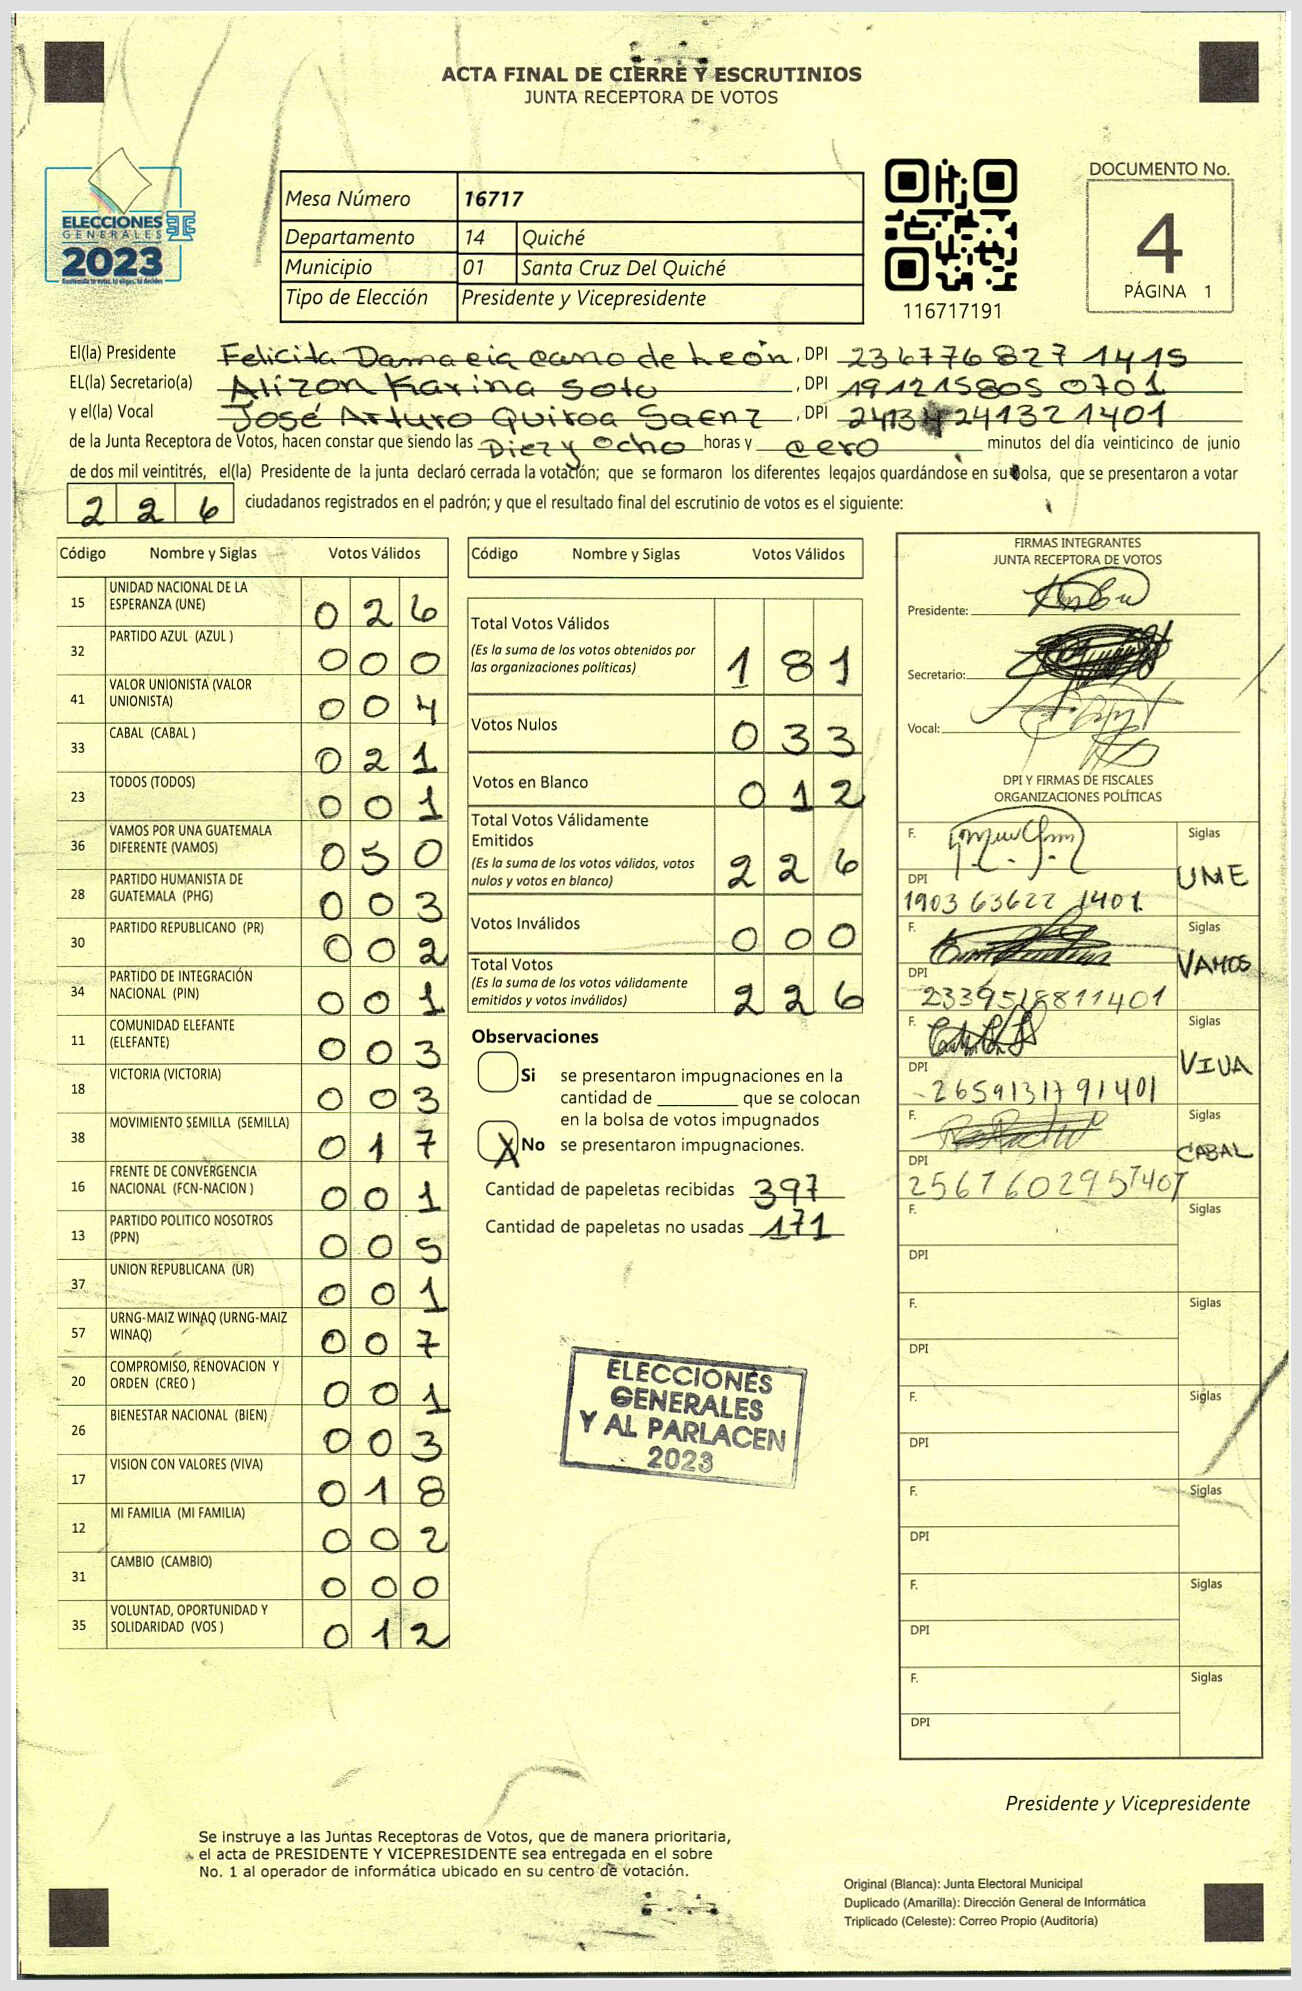 ACTA FINAL DE CIERRE Y ESCRUTINIOS
JUNTA RECEPTORA DE VOTOS
ELECCIONES
GENERALES
2023
Mesa Número 16717
Departamento 14 Quiché
Municipio 01 Santa Cruz Del Quiché
Tipo de Elección Presidente y Vicepresidente
116717191
DOCUMENTO No.
4
PÁGINA 1
El(la) Presidente Felicita Damacia cano de León, DPI 236776827 1415
EL(la) Secretario(a) Alizon Karina Soto, DPI 191215805 0701
y el(la) Vocal José Arturo Quiroa Saenz, DPI 24134 241321401
de la Junta Receptora de Votos, hacen constar que siendo las Diez y Ocho horas y cero minutos del día veinticinco de junio
de dos mil veintitrés, el(la) Presidente de la junta declaró cerrada la votación; que se formaron los diferentes legajos quardándose en su bolsa, que se presentaron a votar
2 2 6 ciudadanos registrados en el padrón; y que el resultado final del escrutinio de votos es el siguiente:
Código Nombre y Siglas Votos Válidos
15 UNIDAD NACIONAL DE LA ESPERANZA (UNE) 0 2 6
32 PARTIDO AZUL (AZUL ) 0 0 0
41 VALOR UNIONISTA (VALOR UNIONISTA) 0 0 4
33 CABAL (CABAL ) 0 2 1
23 TODOS (TODOS) 0 0 1
36 VAMOS POR UNA GUATEMALA DIFERENTE (VAMOS) 0 5 0
28 PARTIDO HUMANISTA DE GUATEMALA (PHG) 0 0 3
30 PARTIDO REPUBLICANO (PR) 0 0 2
34 PARTIDO DE INTEGRACIÓN NACIONAL (PIN) 0 0 1
11 COMUNIDAD ELEFANTE (ELEFANTE) 0 0 3
18 VICTORIA (VICTORIA) 0 0 3
38 MOVIMIENTO SEMILLA (SEMILLA) 0 1 7
16 FRENTE DE CONVERGENCIA NACIONAL (FCN-NACION ) 0 0 1
13 PARTIDO POLITICO NOSOTROS (PPN) 0 0 5
37 UNION REPUBLICANA (UR) 0 0 1
57 URNG-MAIZ WINAQ (URNG-MAIZ WINAQ) 0 0 7
20 COMPROMISO, RENOVACION Y ORDEN (CREO ) 0 0 1
26 BIENESTAR NACIONAL (BIEN) 0 0 3
17 VISION CON VALORES (VIVA) 0 1 8
12 MI FAMILIA (MI FAMILIA) 0 0 2
31 CAMBIO (CAMBIO) 0 0 0
35 VOLUNTAD, OPORTUNIDAD Y SOLIDARIDAD (VOS ) 0 1 2
Código Nombre y Siglas Votos Válidos
Total Votos Válidos
(Es la suma de los votos obtenidos por
las organizaciones políticas) 1 8 1
Votos Nulos 0 3 3
Votos en Blanco 0 1 2
Total Votos Válidamente
Emitidos
(Es la suma de los votos válidos, votos
nulos y votos en blanco) 2 2 6
Votos Inválidos 0 0 0
Total Votos
(Es la suma de los votos válidamente
emitidos y votos inválidos) 2 2 6
Observaciones
Si se presentaron impugnaciones en la
cantidad de ________ que se colocan
en la bolsa de votos impugnados
X No se presentaron impugnaciones.
Cantidad de papeletas recibidas 397
Cantidad de papeletas no usadas 171
ELECCIONES
GENERALES
Y AL PARLACEN
2023
FIRMAS INTEGRANTES
JUNTA RECEPTORA DE VOTOS
Presidente:
Secretario:
Vocal:
DPI Y FIRMAS DE FISCALES
ORGANIZACIONES POLÍTICAS
F. Siglas
UNE
DPI
1903 63622 1401
F. Siglas
VAMOS
DPI
2339518811401
F. Siglas
VIVA
DPI
2659131791401
F. Siglas
CABAL
DPI
2567602951401
F. Siglas
DPI
F. Siglas
DPI
F. Siglas
DPI
F. Siglas
DPI
F. Siglas
DPI
F. Siglas
DPI
Presidente y Vicepresidente
Se instruye a las Juntas Receptoras de Votos, que de manera prioritaria,
el acta de PRESIDENTE Y VICEPRESIDENTE sea entregada en el sobre
No. 1 al operador de informática ubicado en su centro de votación.
Original (Blanca): Junta Electoral Municipal
Duplicado (Amarilla): Dirección General de Informática
Triplicado (Celeste): Correo Propio (Auditoría)